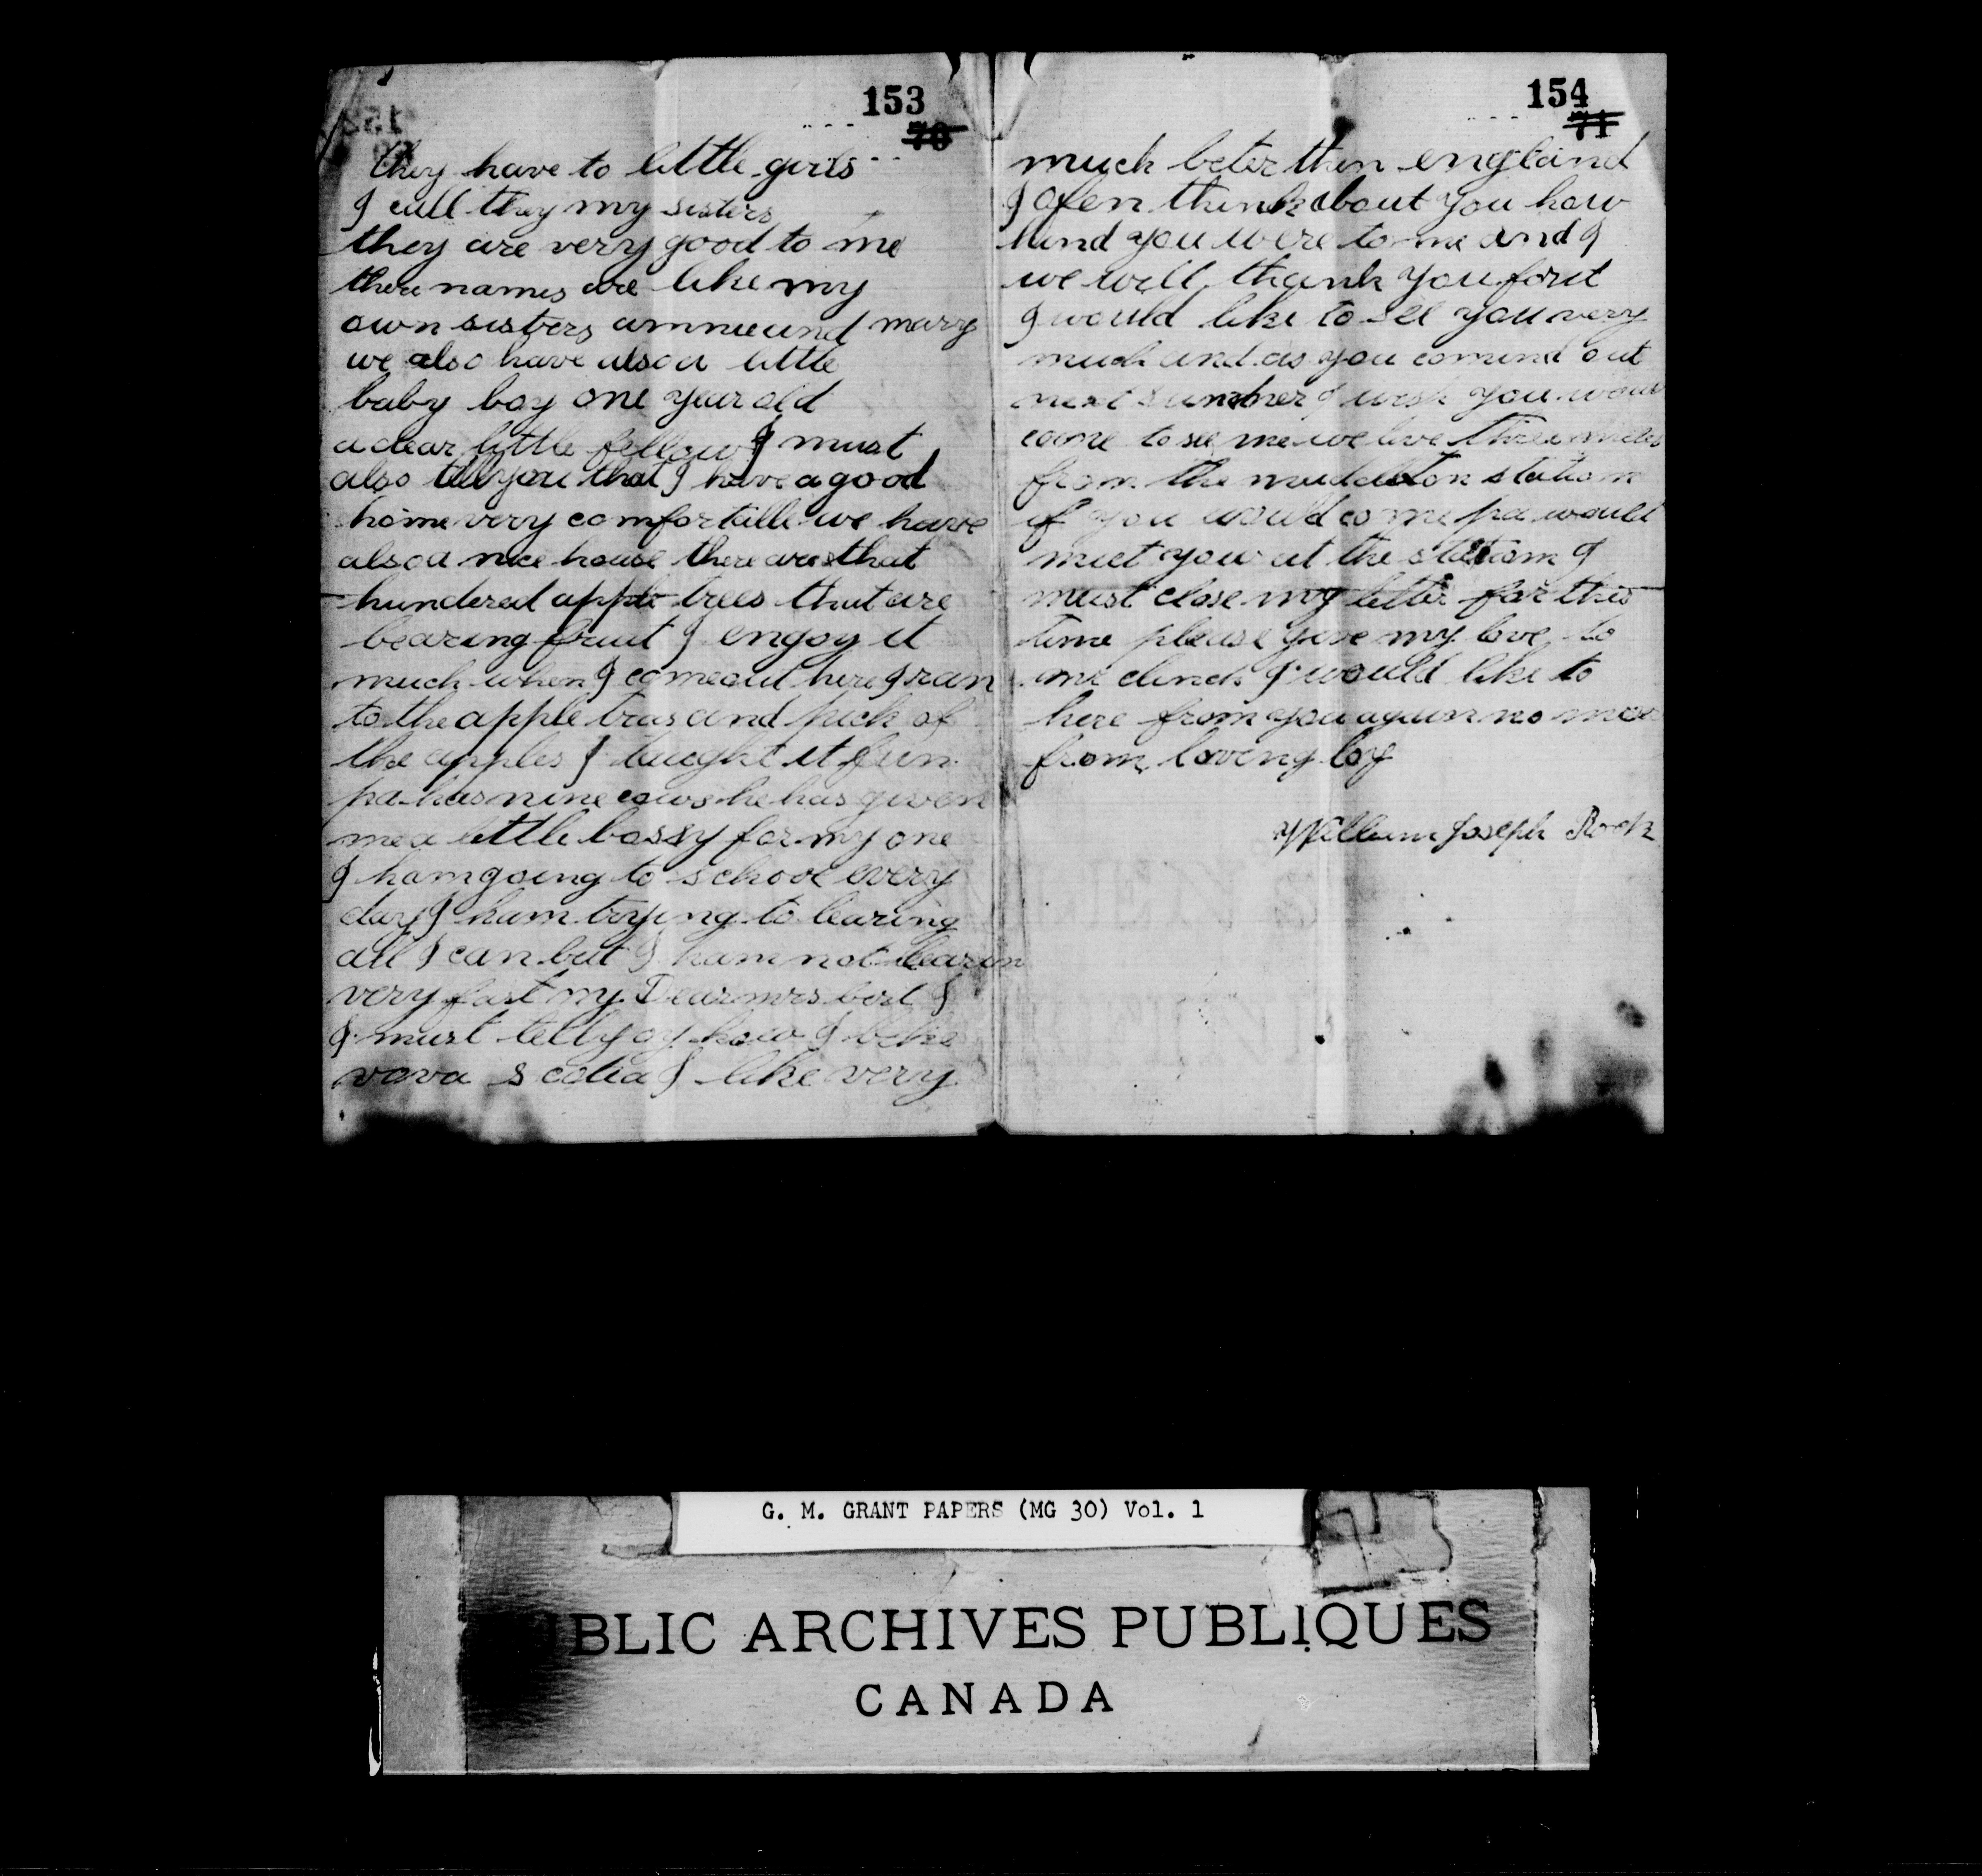 153
70
they have to little girls
I call they my sisters
they are very good to me
there names are like my
own sisters annie and marry
we also have also a little
baby boy one year old
a dear little fellow I must
also tell you that I have a good
home very comfortable we have
also a nice house there are that
hundered apple trees that are
bearing fruit I engoy it
much when I come out here I ran
to the apple trees and pick of
the apples I taught it fun
pa has nine cows he has given
me a little bossy for my one
I ham going to school every
day I ham trying to learing
all I can but I ham not learin
very fast my Dear mrs I
I must tell how I like
vova scotia I like very
154
71
much beter then england
I ofen think about you how
kind you were to me and I
we will thank you for it
I would like to see you very
much and as you comind out
next summer I wish you woud
come to see me we live three miles
from the middelton station
if you would come pa would
meet you at the station I
must close my letter for this
time please give my love to
I would like to
here from you again no more
from loving boy
William Joseph Rook
G. M. GRANT PAPERS (MG 30) Vol. 1
BLIC ARCHIVES PUBLIQUES
CANADA